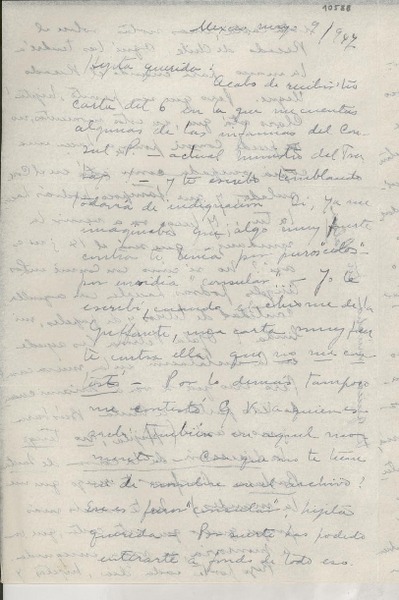 10588
Mexico mayo 9/947
Hijita querida:
Acabo de recibir tu
carta del 6 en la que me cuentas
algunas de las infamias del Con-
sul — actual ministro del Tra-
— y te escribo temblando
todavía de indignación. Si, ya me
imaginaba que algo muy fuerte
contra tí tenía por puros "celos"
por envidia consular. Yo te
escribí, cuando el chisme de la
una carta muy fuer-
te contra ella, que no me con-
testó — Por lo demás tampoco
me contestó G. K a quien es-
cribí también en aquel mo-
mento.
de
esos puros "consules"! hijita
querida. Por suerte has podido
enterarte a fondo de todo eso.